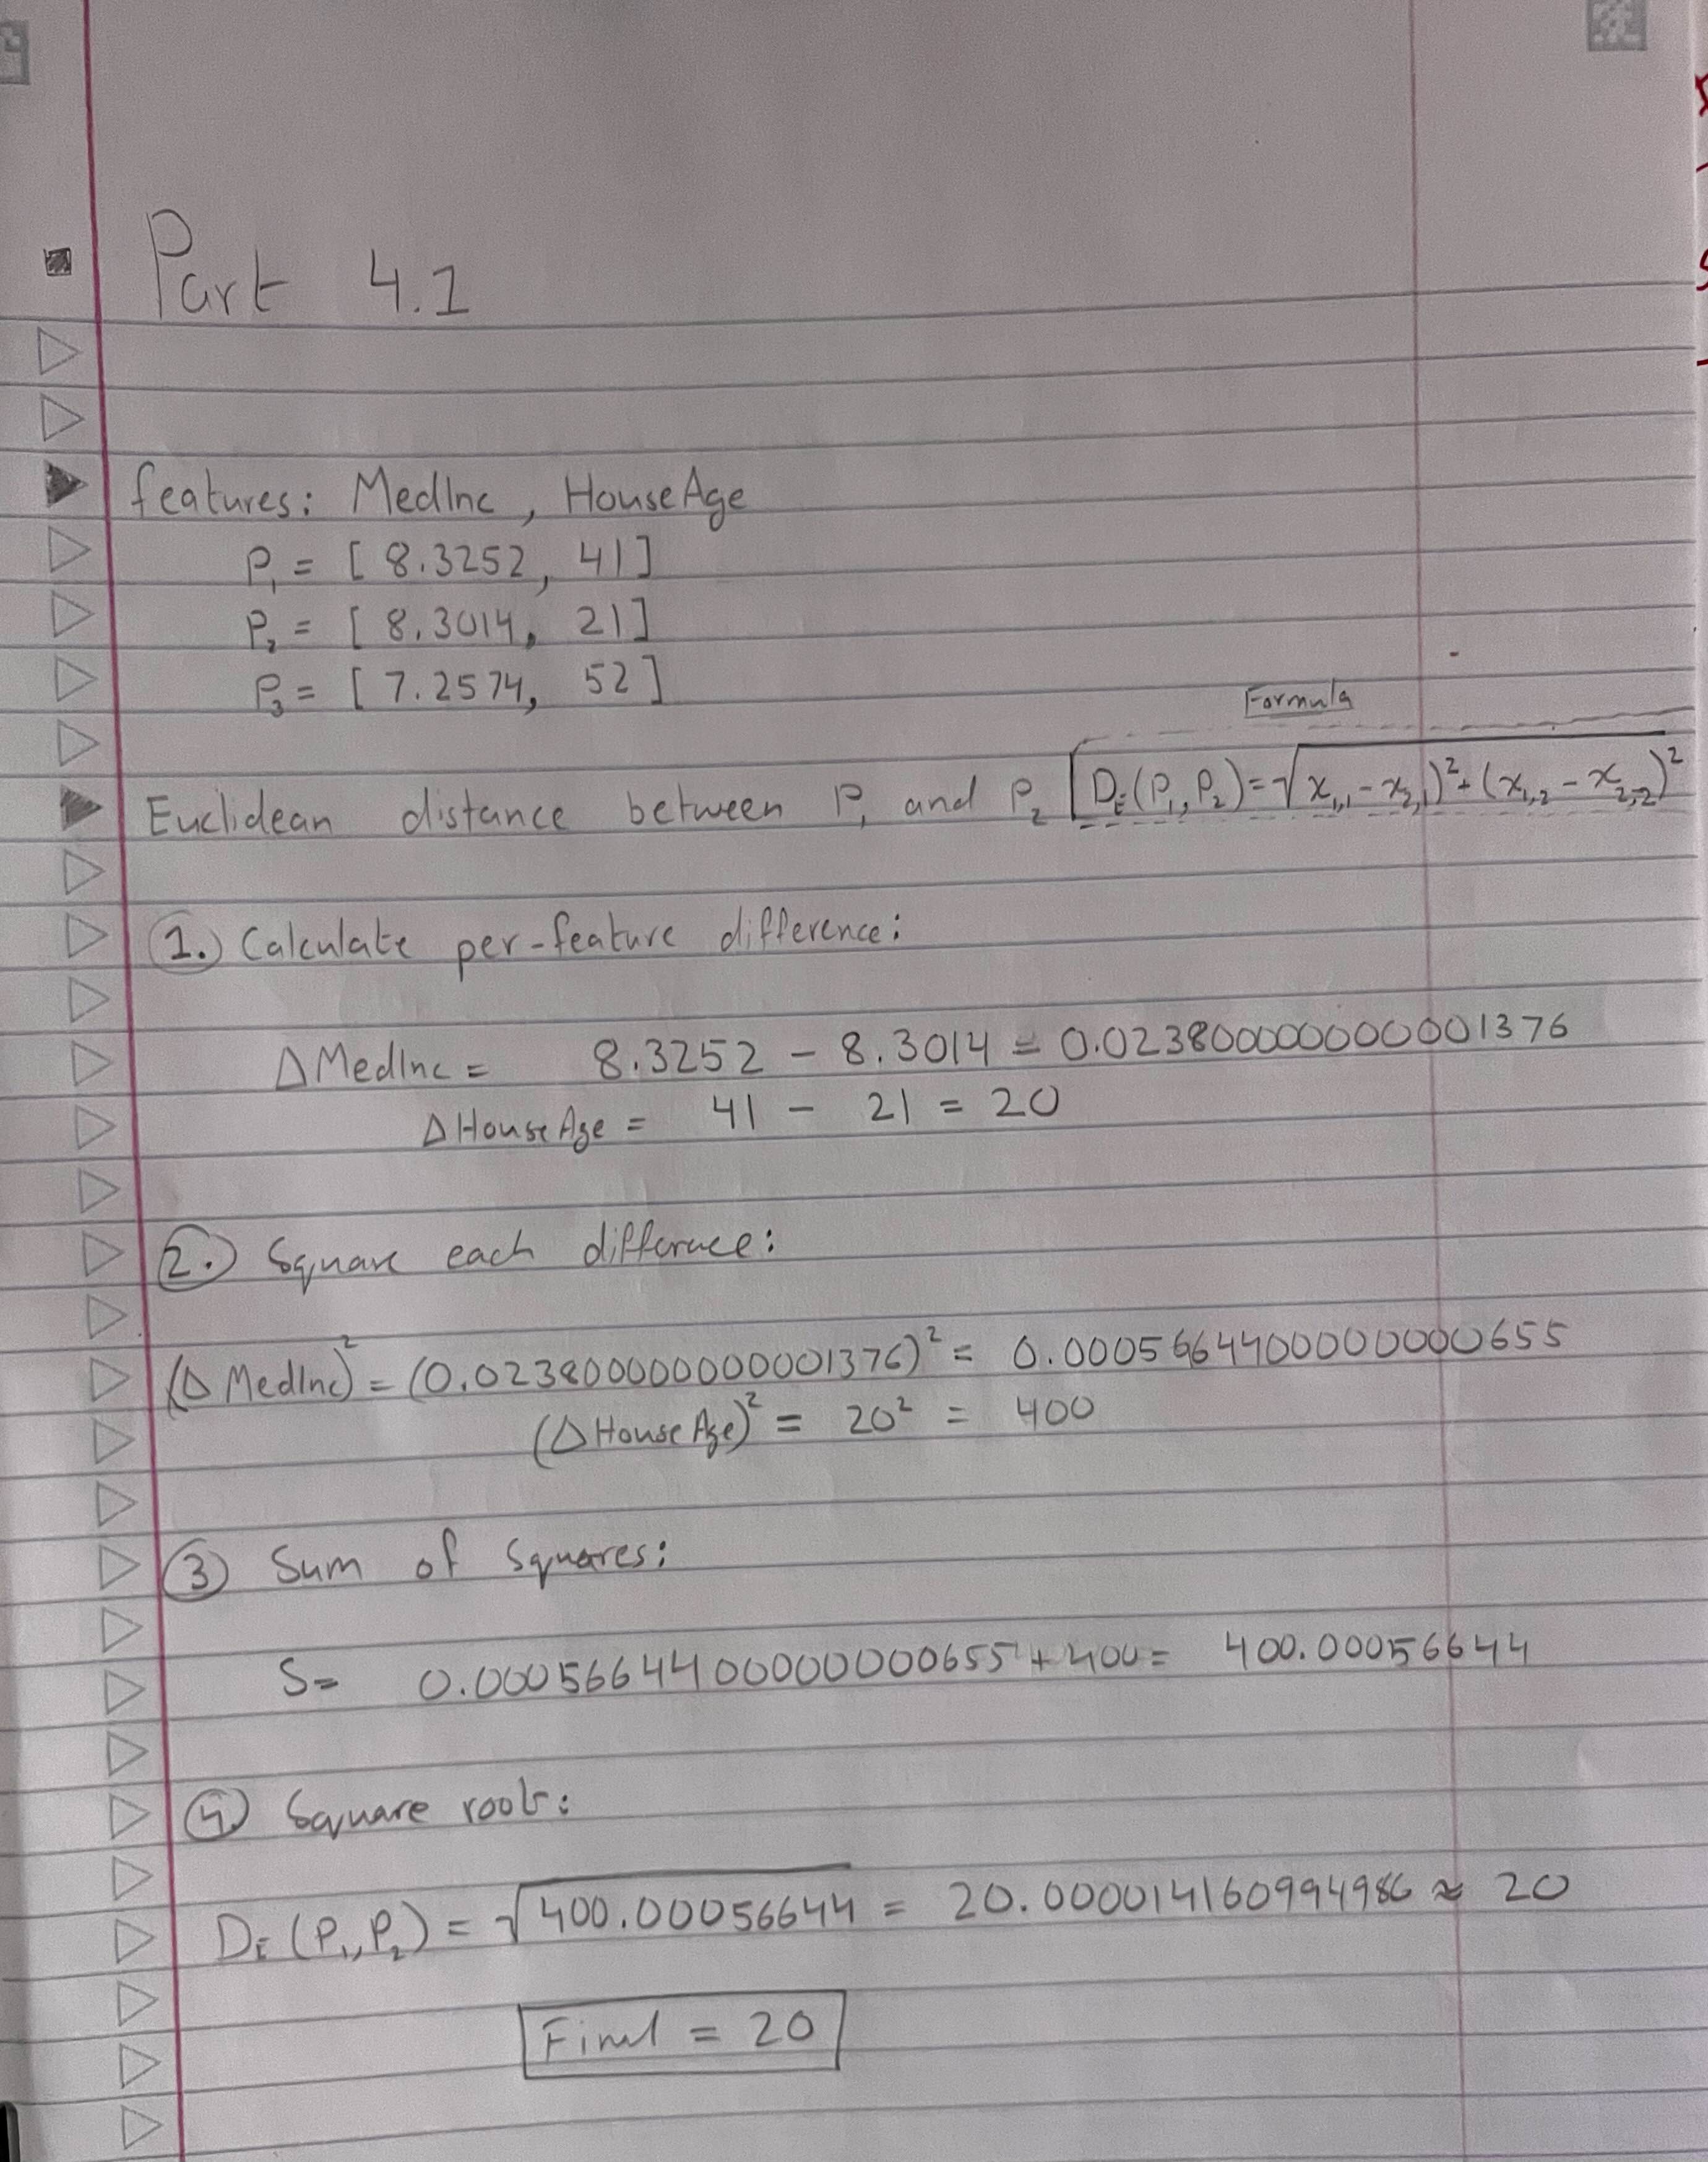 Part 4.1
features: MedInc, HouseAge
P₁ = [ 8.3252, 41]
P₂ = [ 8.3014, 21]
P₃ = [ 7.2574, 52]
Formula
Euclidean distance between P₁ and P₂ [D_E(P₁,P₂)=√x₁,₁-x₂,₁)²+(x₁,₂-x₂,₂)²
1.) Calculate per-feature difference:
ΔMedInc = 8.3252 - 8.3014 = 0.023800000000001376
ΔHouseAge = 41 - 21 = 20
2.) Square each difference:
(ΔMedInc)² = (0.023800000000001376)² = 0.000566440000000000655
(ΔHouseAge)² = 20² = 400
3) Sum of squares:
S= 0.000566440000000000655 + 400 = 400.00056644
4) Square root:
D_E(P₁,P₂) = √400.00056644 = 20.000014160994986 ≈ 20
Final = 20